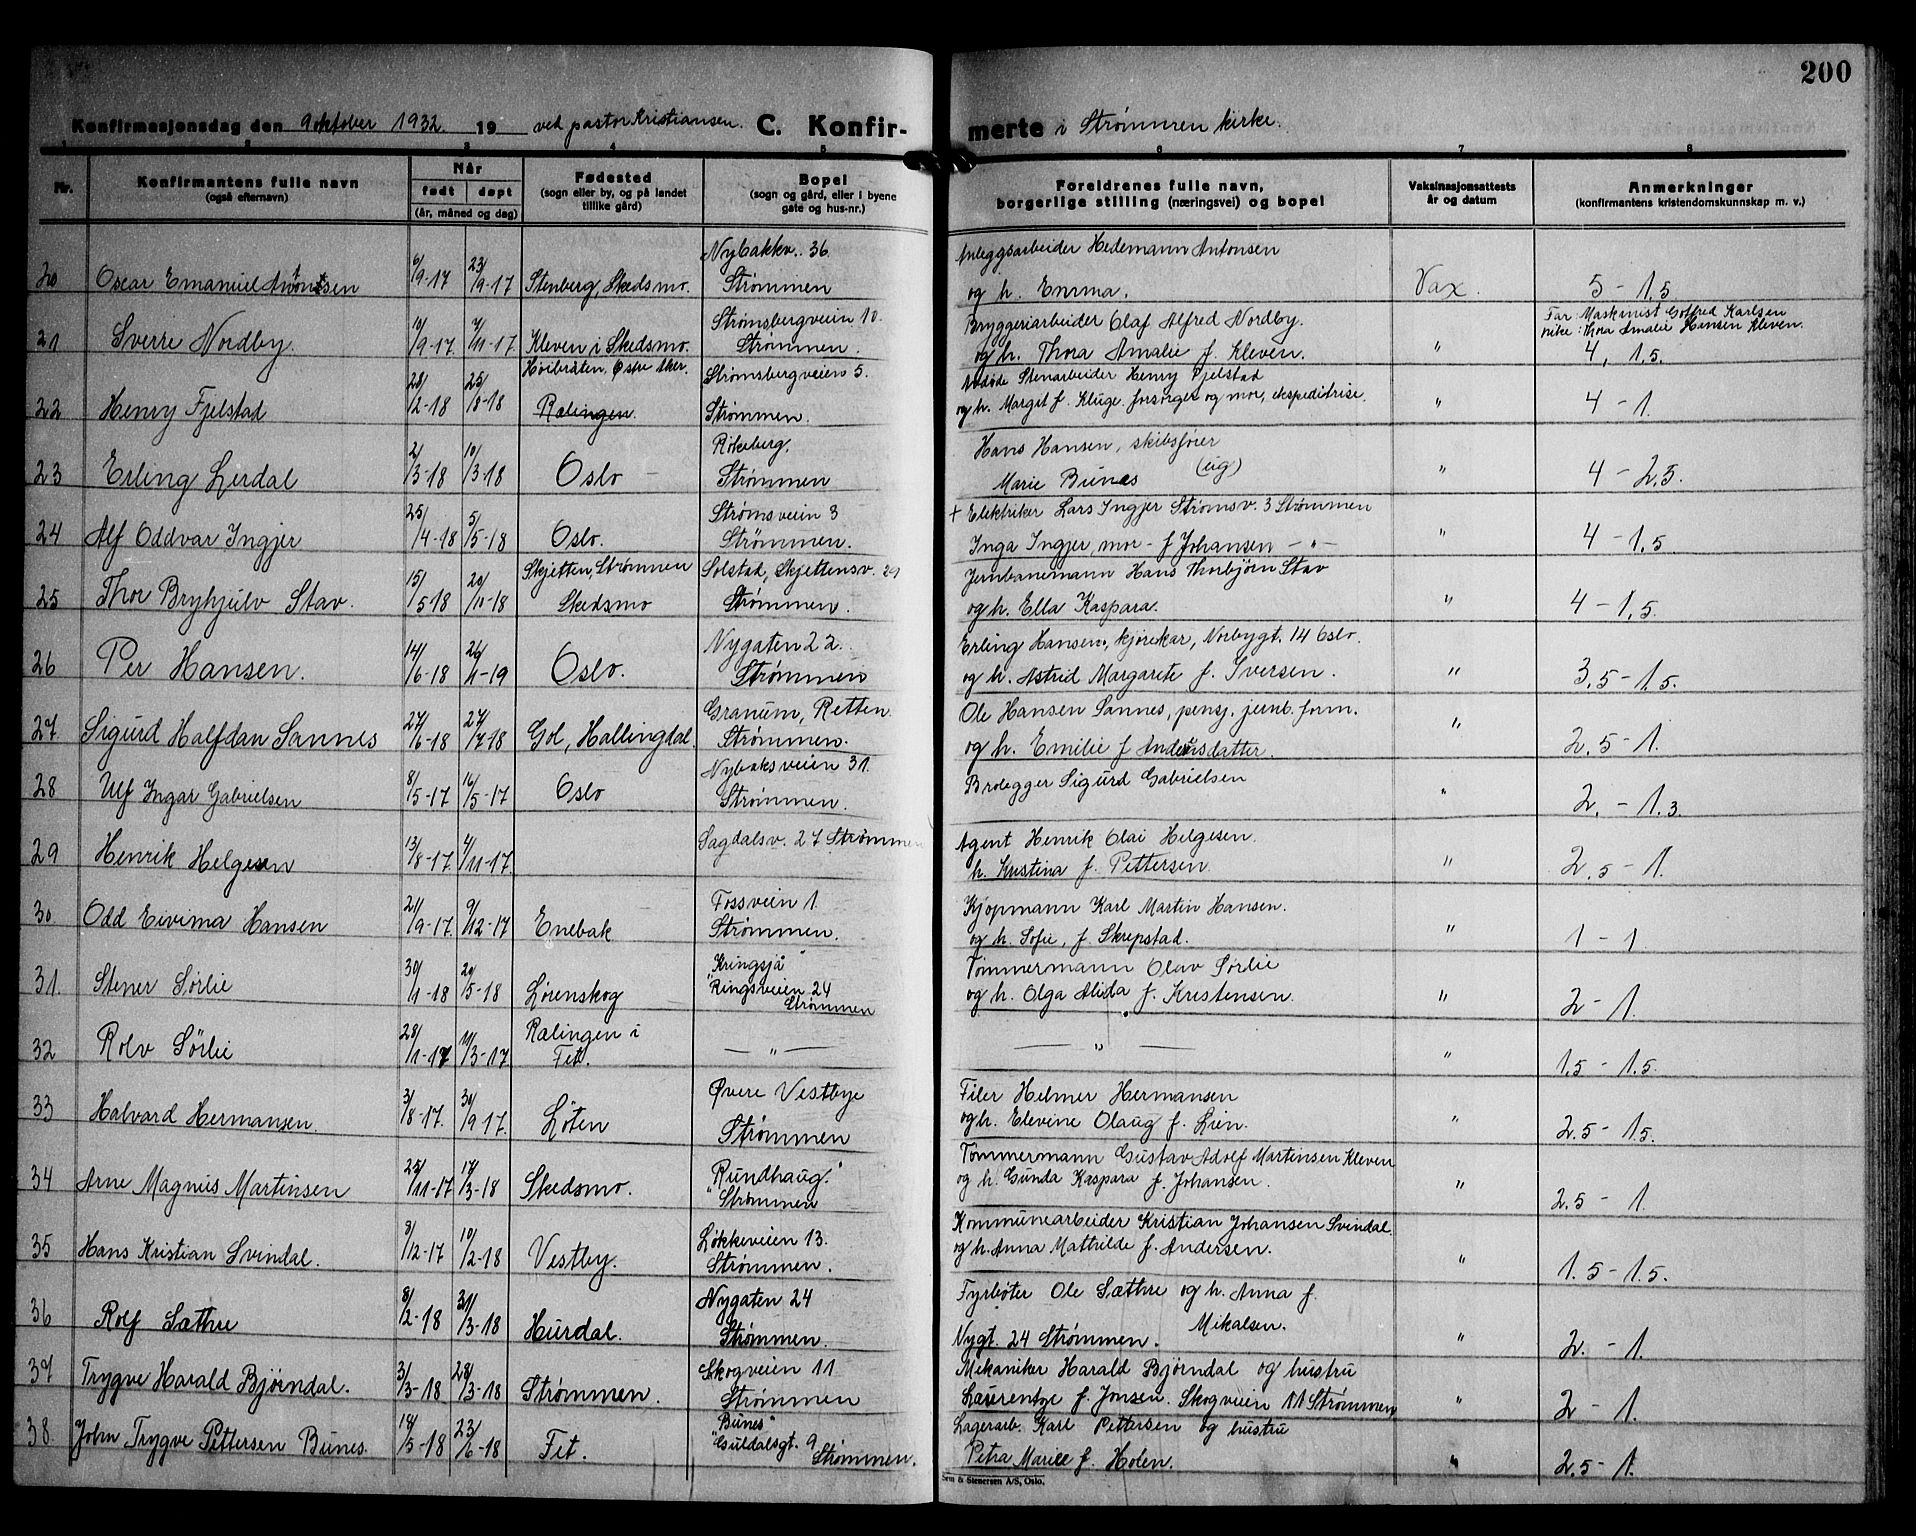 200
Konfirmasjonsdag den 9 oktober 1932. 19 ved pastor Kristiansen. C. Konfirmerte i Strømmen kirke.
1 2 3 4 5 6 7 8
Nr. Konfirmantens fulle navn (også efternavn) Når født døpt (år, måned og dag) Fødested (sogn eller by, og på landet tillike gård) Bopel (sogn og gård, eller i byene gate og hus-nr.) Foreldrenes fulle navn, borgerlige stilling (næringsvei) og bopel Vaksinasjonsattests år og datum Anmerkninger (konfirmantens kristendomskunnskap m. v.)
Nybakkv. 36 Anleggsarbeider Hedemann Antonsen
20 Oscar Emanuel Antonsen 6/9-17 23/9-17 Stenberg, Skedsmo. Strømmen og h. Emma. Vax. 5 - 1.5
Strømsbergveien 10. Bryggeriarbeider Olaf Alfred Nordby. Far: Maskinist Gotfred Karlsen
pike: Thora Amalie Hansen Kleven.
21 Sverre Nordby. 10/9-17. 4/11-17. Kleven i Skedsmo. Strømmen. og h. Thora Amalie f. Kleven. " 4, 1.5.
Høibråten, Østre Aker. Strømsbergveien 5. Avdøde Stenarbeider Henry Fjelstad
22 Henry Fjelstad 28/2-18 25/8-18 Rælingen. Strømmen. og h. Margit f. Kluge. forsørger og mor, ekspeditrise. " 4 - 1.
Rökeberg. Hans Hansen, skibsfører
23 Erling Lerdal 2/3-18 10/3-18 Oslo Strømmen Marie Bunes (ug) " 4 - 2.5.
Strømsveien 3 + Elektriker Lars Ingjer Strømsv. 3 Strømmen
24 Alf Oddvar Ingjer 25/4-18 5/5-18 Oslo. Strømmen. Inga Ingjer, mor - f Johansen - " - " 4 - 1.5
Skjetten, Strømmen Solstad, Skjettensv. 29 Jernbanemann Hans Thorbjørn Stav
25 Thor Brynjulv Stav. 15/5-18 20/10-18 Skedsmo Strømmen. og h. Ella Kaspara. " 4 - 1.5.
Nygaten 22. Erling Hansen, kjørekar, Norbygt. 14 Oslo.
26 Per Hansen. 14/6-18 26/11-19 Oslo. Strømmen og h. Astrid Margarete f. Iversen. " 3.5 - 1.5.
Granum, Retten. Ole Hansen Sannes, pensj. jernb. form.
27. Sigurd Halfdan Sannes 27/6-18 27/7-18 Gol, Hallingdal. Strømmen. og h. Emilie f Andersdatter. " 2.5 - 1.
Nybaksveien 31. Brolegger Sigurd Gabrielsen
28 Ulf Ingar Gabrielsen 8/5-17 16/5-17 Oslo Strømmen. " 2. - 1.3
Sagdalsv. 27 Strømmen Agent Henrik Olai Helgesen.
29 Henrik Helgesen 13/8-17. 4/11-17. h. Kristina f. Pettersen. " 2.5 - 1.
Fossveien 1 Kjøpmann Karl Martin Hansen.
30. Odd Eivima Hansen 21/9-17. 9/12-17 Enebak Strømmen. og h. Sofie, f. Skrepstad. " 1 - 1
"Kringsjå" Tømmermann Olav Sørlie
31. Stener Sørlie 30/1-18 20/5-18 Lørenskog Ringsveien 24 Strømmen og h. Olga Alida f. Kristensen. " 2 - 1.
32 Rolv Sørlie 28/1-17 11/3-17. Rælingen i Fet. - " - - " - " 1.5 - 1.5.
Øvere Vestbye Filer Helmer Hermansen
33 Halvard Hermansen. 3/8-17. 30/9 17. Løten Strømmen og h. Elevine Olaug f. Lien. " 2.5 - 1.5.
"Rundhaug" Tømmermann Gustav Adolf Martinsen Kleven
34 Arne Magnus Martinsen 25/11-17 17/3-18 Skedsmo. Strømmen og h. Gunda Kaspara f. Johansen. " 2.5 - 1
Løkkeveien 13. Kommunearbeider Kristian Johansen Svindal.
35 Hans Kristian Svindal. 8/12-17 10/2-18 Vestby. Strømmen. og h. Anna Mathilde f. Andersen. " 1.5 - 1.5.
Nygaten 24 Fyrbøter Ole Sæthre og h. Anna f.
Mikalsen.
36 Rolf Sæthre 8/2-18 31/3-18 Hurdal. Strømmen. Nygt. 24 Strømmen. " 2. - 1.
Skogveien 11 Mekaniker Harald Bjørndal og hustru
37 Trygve Harald Bjørndal. 3/3-18 28/3-18 Strømmen. Strømmen Laurentze f. Jonsen. Skogveien 11 Strømmen " 2 - 1.
"Bunes" Lagerarb. Karl Pettersen og hustru
38. John Trygve Pettersen Bunes. 18/5-18 23/6-18 Fet. Guldalsgt. 9 Strømmen. Petra Marie f. Holen. " 2.5 - 1.
Sem & Stenersen A/S, Oslo.